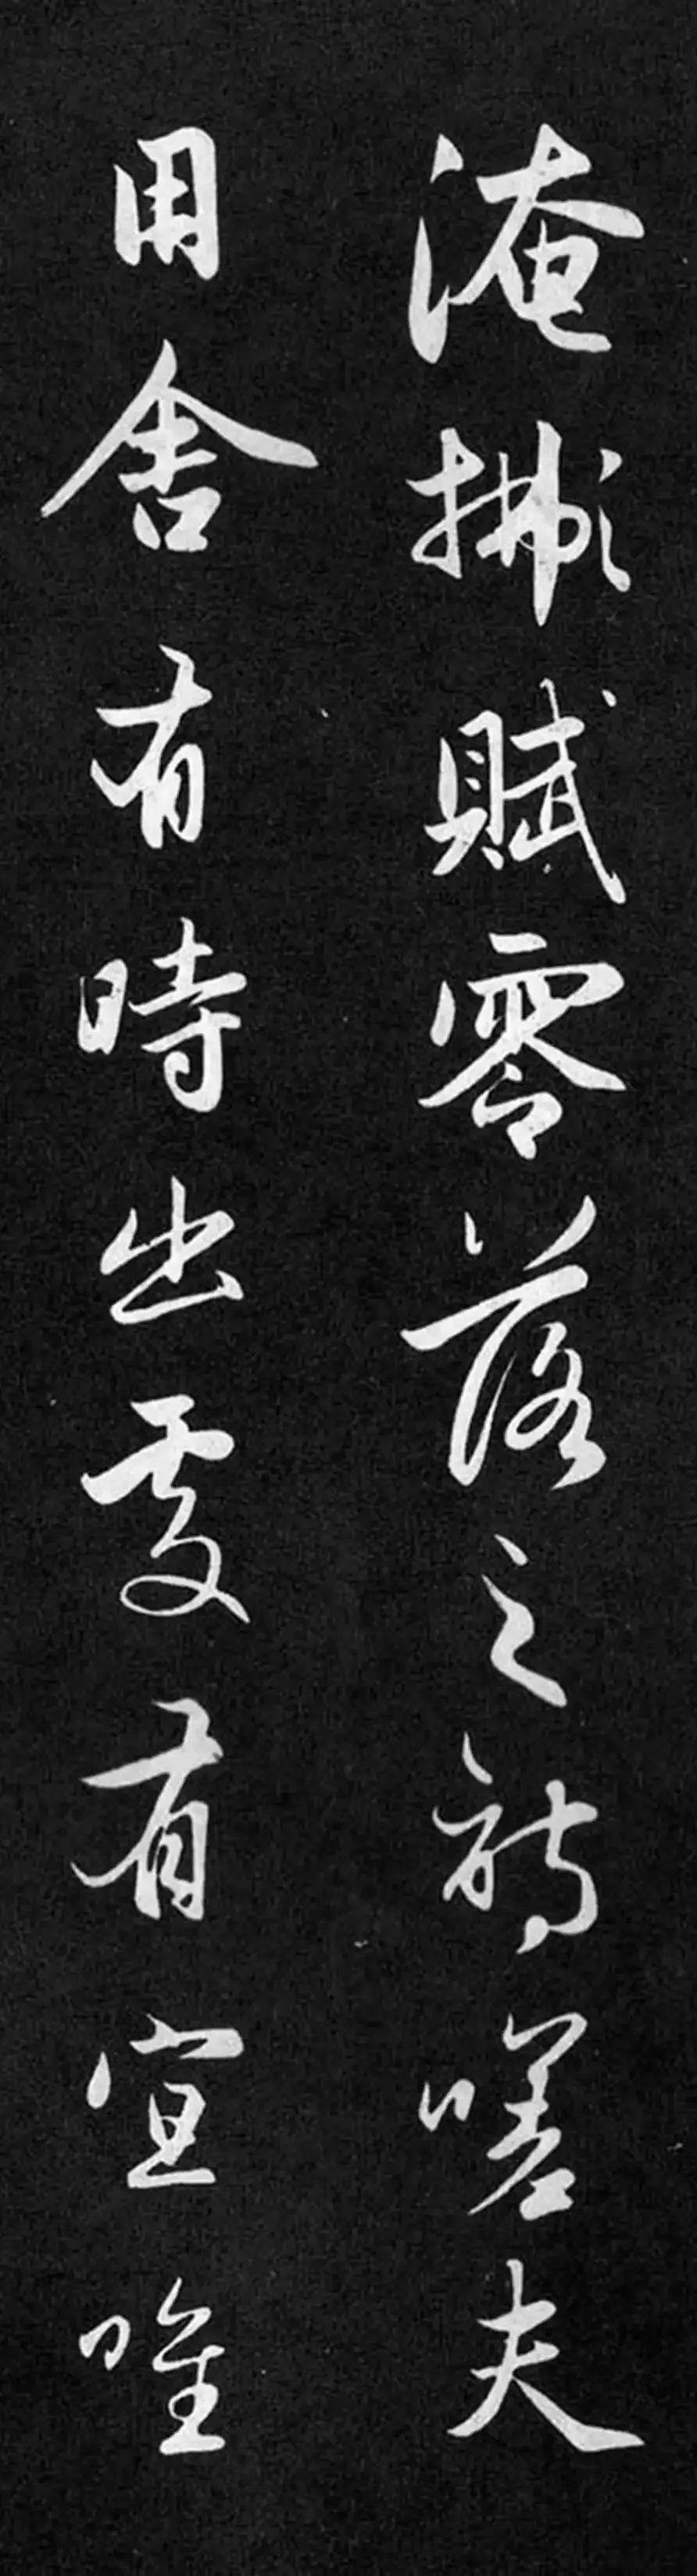 淹賦零落之嗟夫
用舍有時出處有宜唯